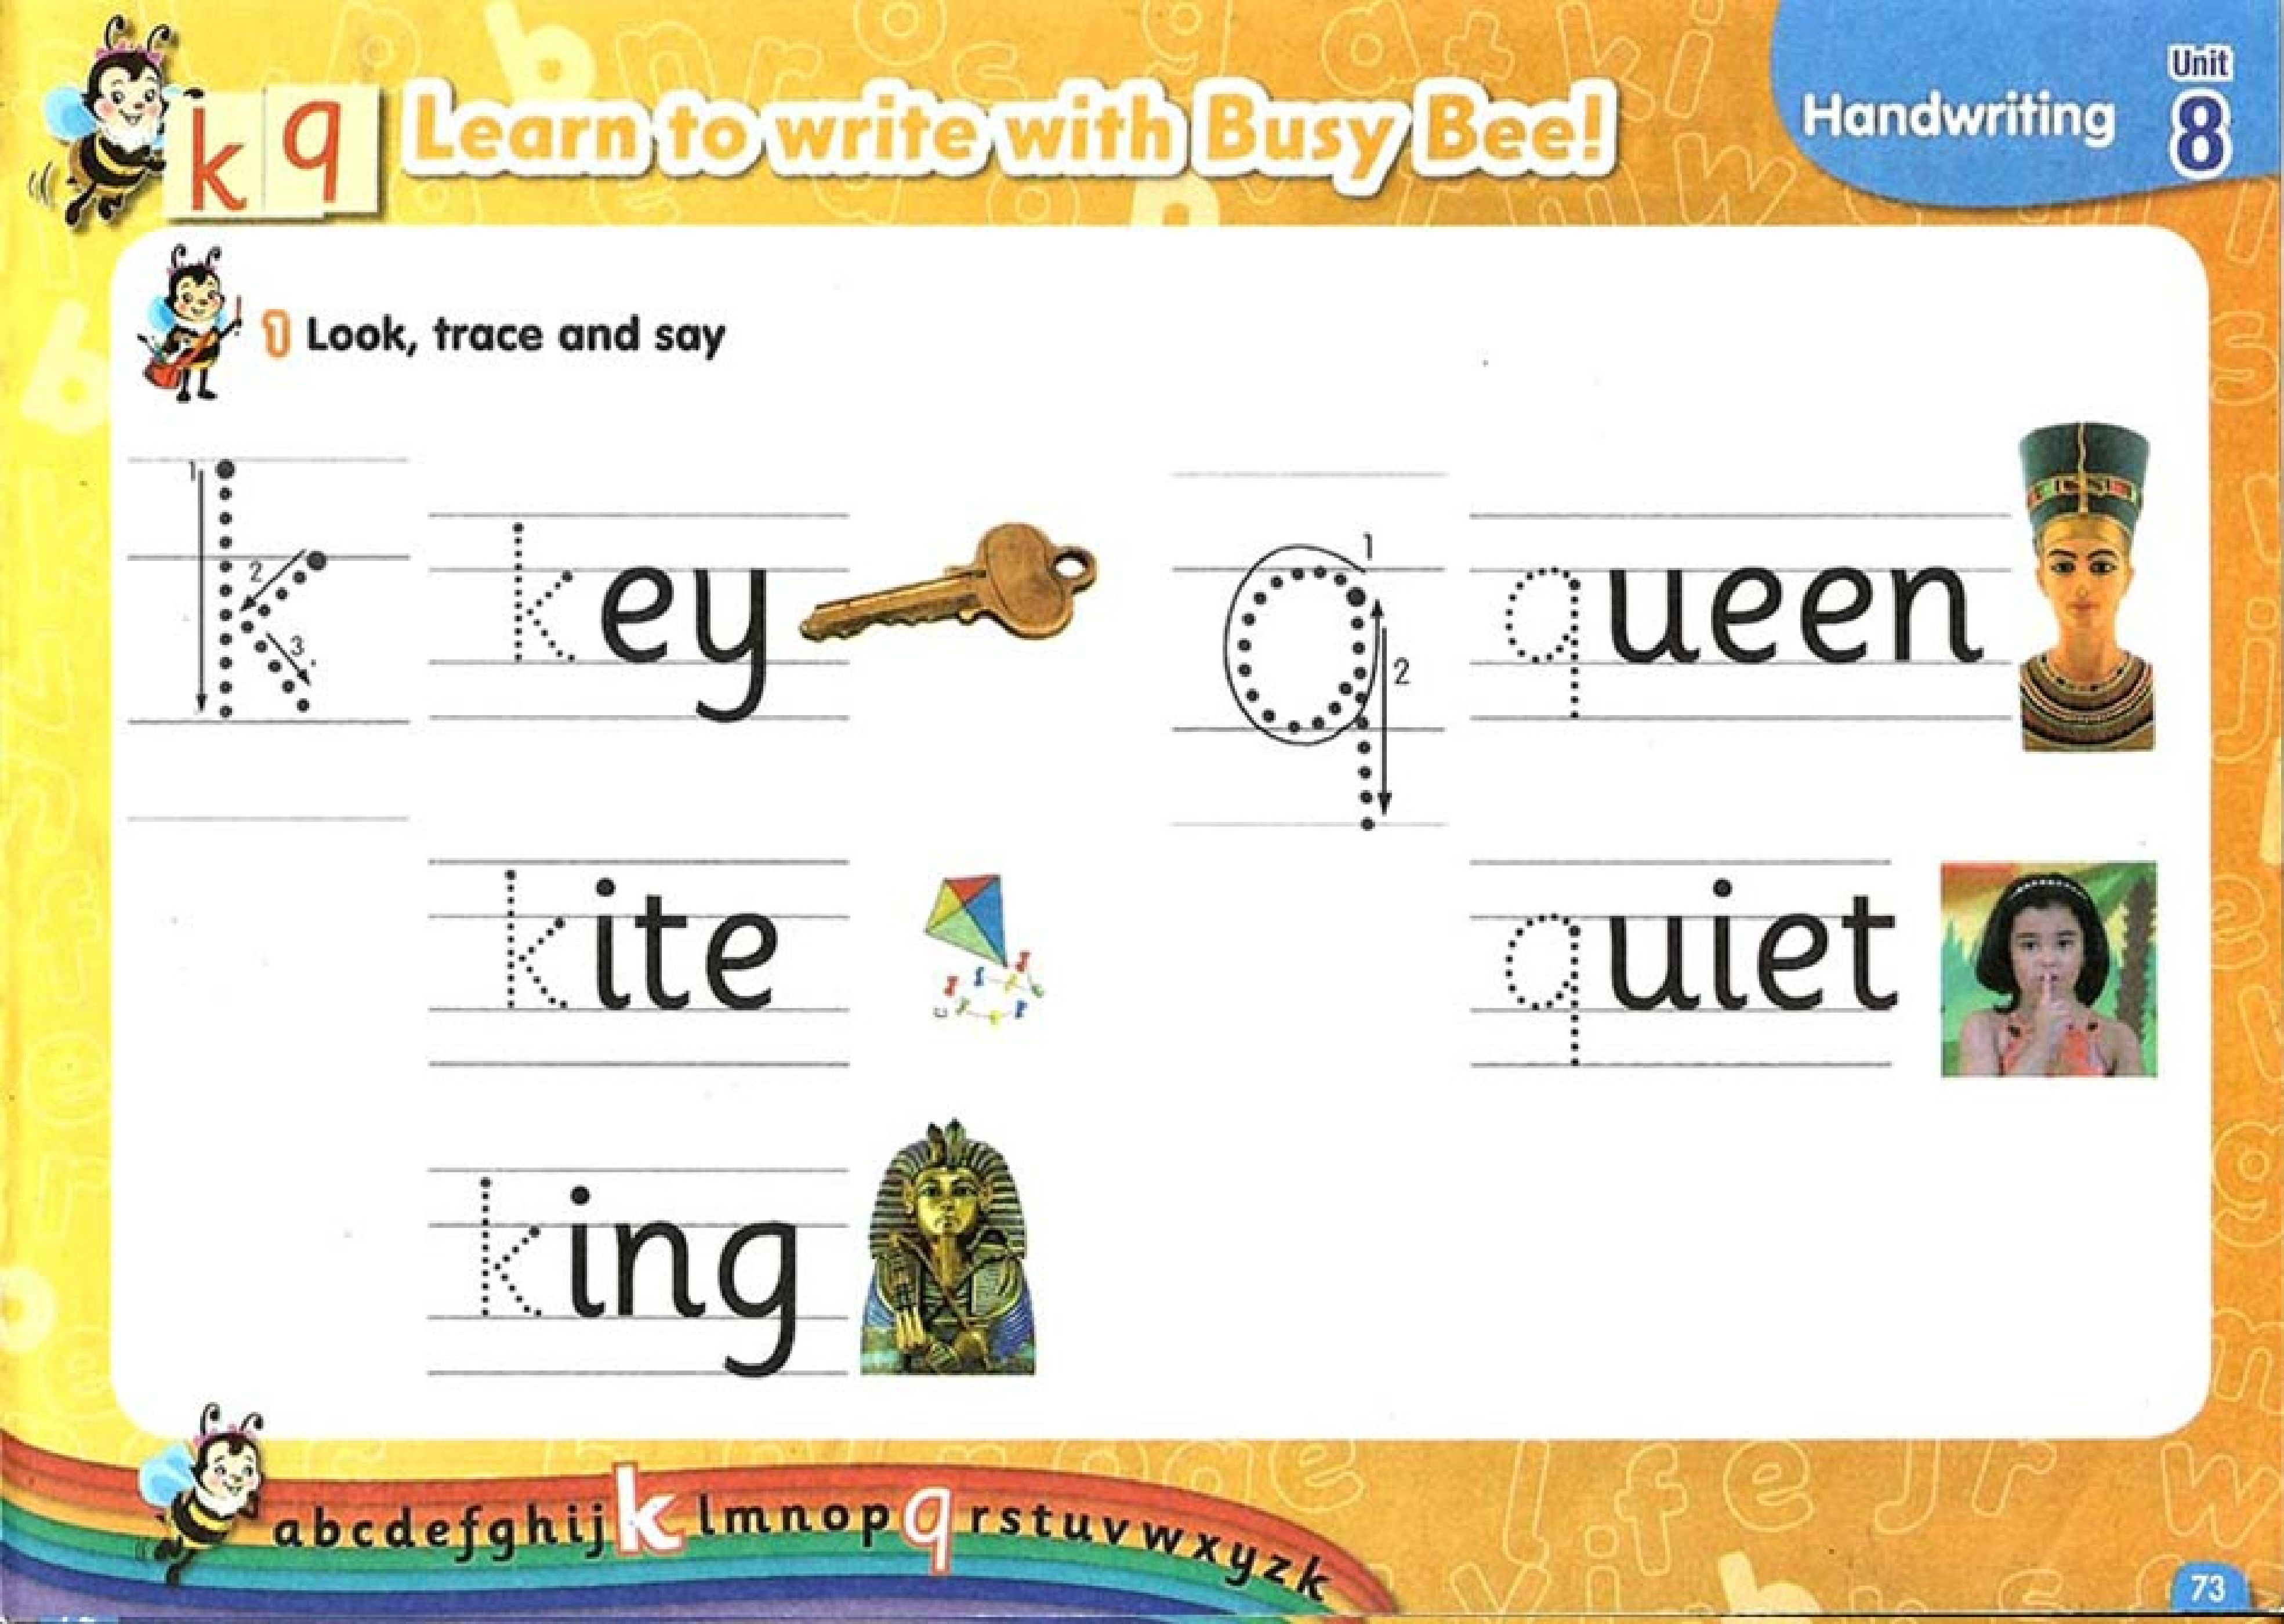 k q Learn to write with Busy Bee!
Handwriting
Unit
8
1 Look, trace and say
1
2
3
k
key
1
2
q
queen
kite
quiet
king
abcdefghijklmnopqrstuvwxyzk
73